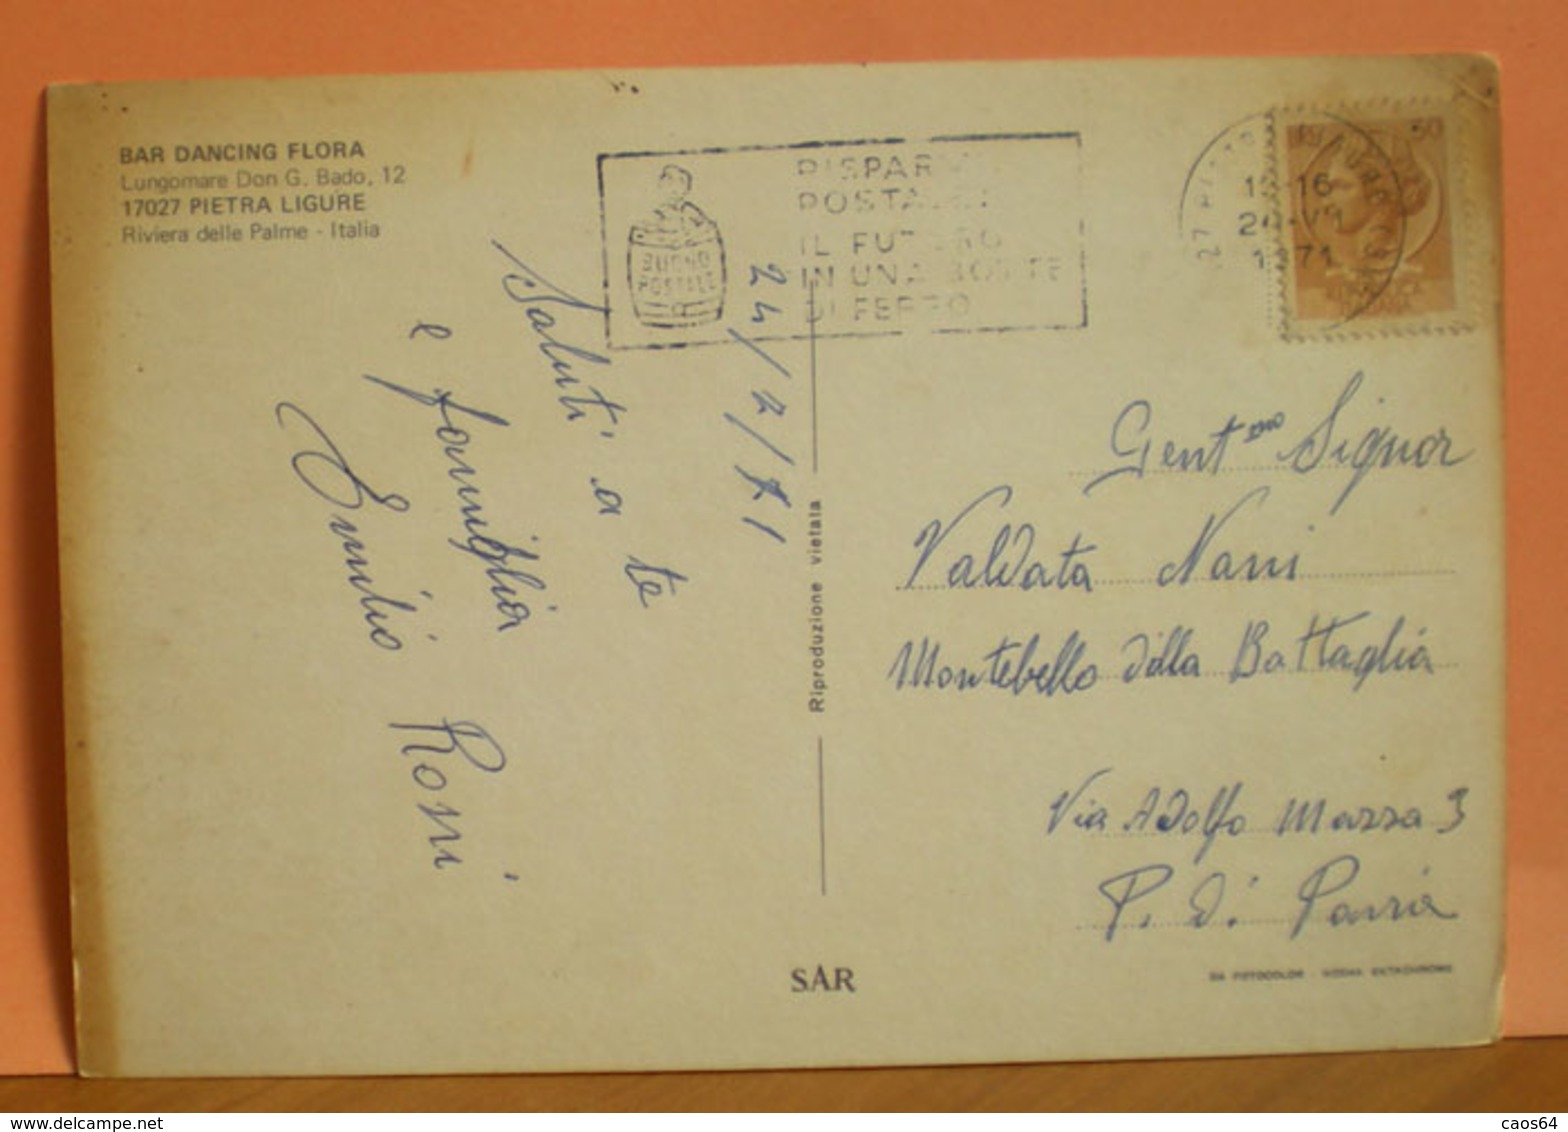 BAR DANCING FLORA
Lungomare Don G. Bado, 12
17027 PIETRA LIGURE
Riviera delle Palme - Italia
BUONO
POSTALE
POSTALE
IL FUTURO
IN UNA BOTTE
DI FERRO
50
24/7/71
Saluti a te
e famiglia
Emilio Roni
Riproduzione vietata
Gent.mo Signor
Valdata Nani
Montebello della Battaglia
Via Adolfo Mazza 3
P. di Pavia
SAR
DA FOTOCOLOR - KODAK EKTACHROME
www.delcampe.net
caos64